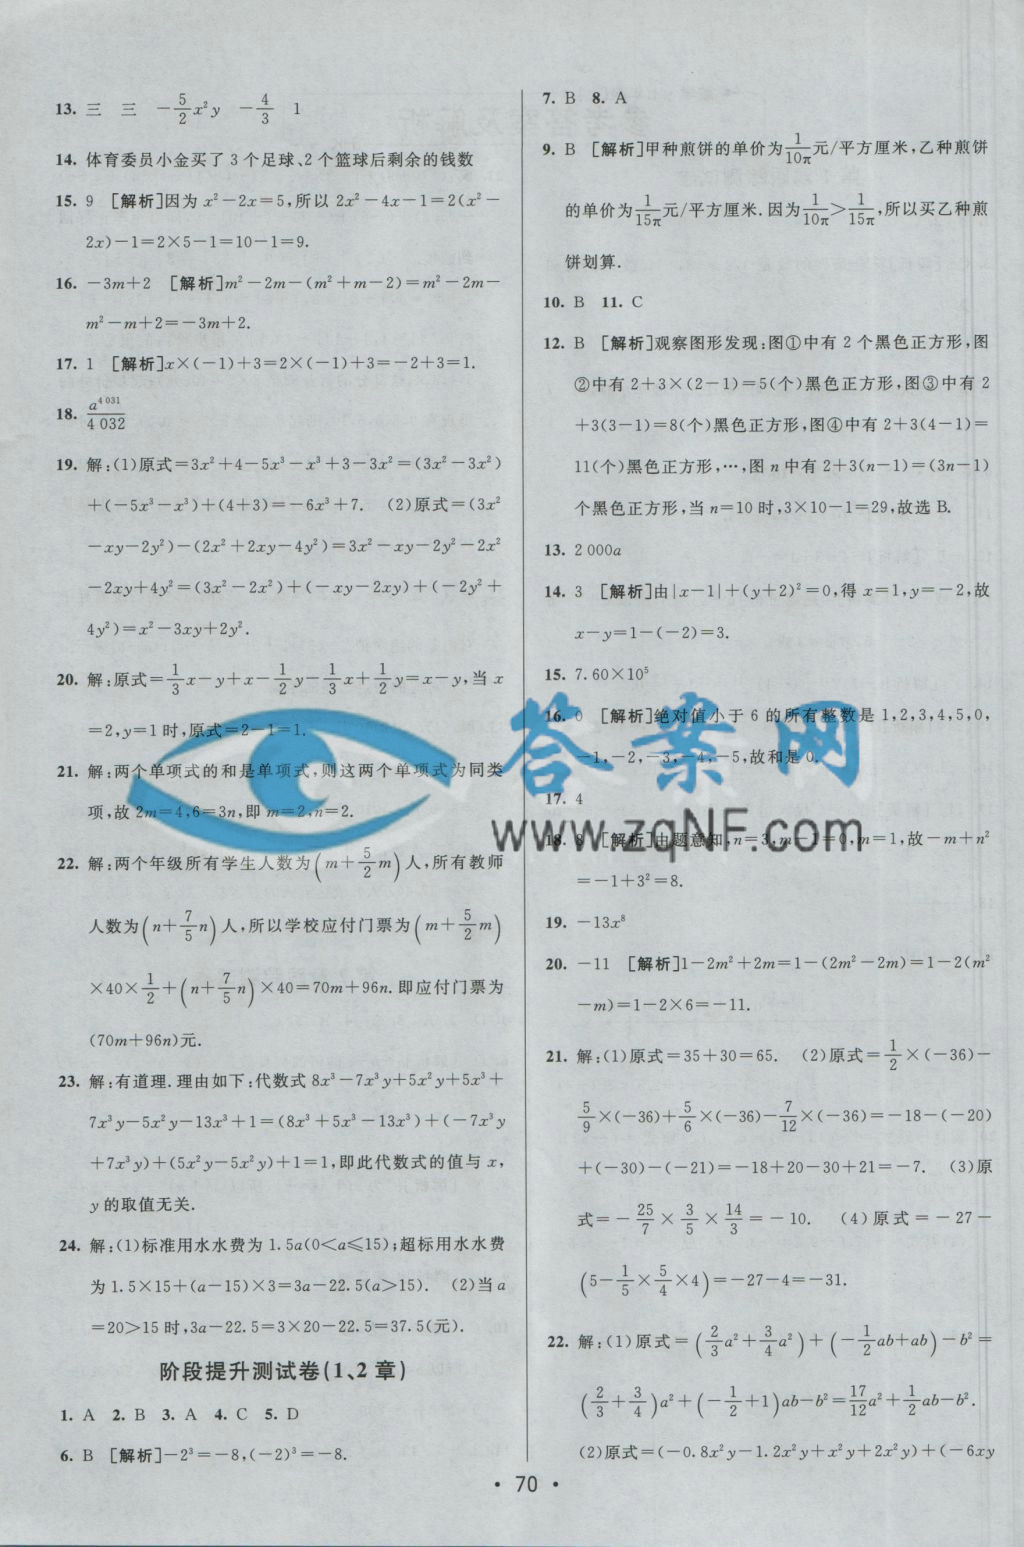 13. 三 三 -5/2x²y -4/3 1
14. 体育委员小金买了3个足球、2个篮球后剩余的钱数
15. 9 [解析]因为x²-2x=5,所以2x²-4x-1=2(x²-
2x)-1=2×5-1=10-1=9.
16. -3m+2 [解析]m²-2m-(m²+m-2)=m²-2m-
m²-m+2=-3m+2.
17. 1 [解析]x×(-1)+3=2×(-1)+3=-2+3=1.
18. a^4 031/4 032
19. 解:(1)原式=3x²+4-5x³-x³+3-3x²=(3x²-3x²)
+(-5x³-x³)+(4+3)=-6x³+7. (2)原式=(3x²
-xy-2y²)-(2x²+2xy-4y²)=3x²-xy-2y²-2x²
-2xy+4y²=(3x²-2x²)+(-xy-2xy)+(-2y²+
4y²)=x²-3xy+2y².
20. 解:原式=1/3x-y+x-1/2y-1/3x+1/2y=x-y,当x
=2,y=1时,原式=2-1=1.
21. 解:两个单项式的和是单项式,则这两个单项式为同类
项,故2m=4,6=3n,即m=2,n=2.
22. 解:两个年级所有学生人数为(m+5/2m)人,所有教师
人数为(n+7/5n)人,所以学校应付门票为(m+5/2m)
×40×1/2+(n+7/5n)×40=70m+96n.即应付门票为
(70m+96n)元.
23. 解:有道理.理由如下:代数式8x³-7x³y+5x²y+5x³+
7x³y-5x²y-13x³+1=(8x³+5x³-13x³)+(-7x³y
+7x³y)+(5x²y-5x²y)+1=1,即此代数式的值与x,
y的取值无关.
24. 解:(1)标准用水水费为1.5a(0<a≤15);超标用水水费
为1.5×15+(a-15)×3=3a-22.5(a>15). (2)当a
=20>15时,3a-22.5=3×20-22.5=37.5(元).
阶段提升测试卷(1、2章)
1. A 2. B 3. A 4. C 5. D
6. B [解析]-2³=-8,(-2)³=-8.
7. B 8. A
9. B [解析]甲种煎饼的单价为1/10π元/平方厘米,乙种煎饼
的单价为1/15π元/平方厘米.因为1/10π>1/15π,所以买乙种煎
饼划算.
10. B 11. C
12. B [解析]观察图形发现:图①中有2个黑色正方形,图
②中有2+3×(2-1)=5(个)黑色正方形,图③中有2
+3(3-1)=8(个)黑色正方形,图④中有2+3(4-1)=
11(个)黑色正方形,…,图n中有2+3(n-1)=(3n-1)
个黑色正方形,当n=10时,3×10-1=29,故选B.
13. 2 000a
14. 3 [解析]由|x-1|+(y+2)²=0,得x=1,y=-2,故
x-y=1-(-2)=3.
15. 7.60×10⁵
16. 0 [解析]绝对值小于6的所有整数是1,2,3,4,5,0,
-1,-2,-3,-4,-5,故和是0.
17. 4
18. 8 [解析]由题意知,n=3,m-1=0,m=1,故-m+n²
=-1+3²=8.
19. -13x⁸
20. -11 [解析]1-2m²+2m=1-(2m²-2m)=1-2(m²
-m)=1-2×6=-11.
21. 解:(1)原式=35+30=65. (2)原式=1/2×(-36)-
5/9×(-36)+5/6×(-36)-7/12×(-36)=-18-(-20)
+(-30)-(-21)=-18+20-30+21=-7. (3)原
式=-25/7×3/5×14/3=-10. (4)原式=-27-
(5-1/5×5/4×4)=-27-4=-31.
22. 解:(1)原式=(2/3a²+3/4a²)+(-1/2ab+ab)-b²=
(2/3+3/4)a²+(-1/2+1)ab-b²=17/12a²+1/2ab-b².
(2)原式=(-0.8x²y-1.2x²y+x²y+2x²y)+(-6xy
答案网
www.zqNF.com
• 70 •